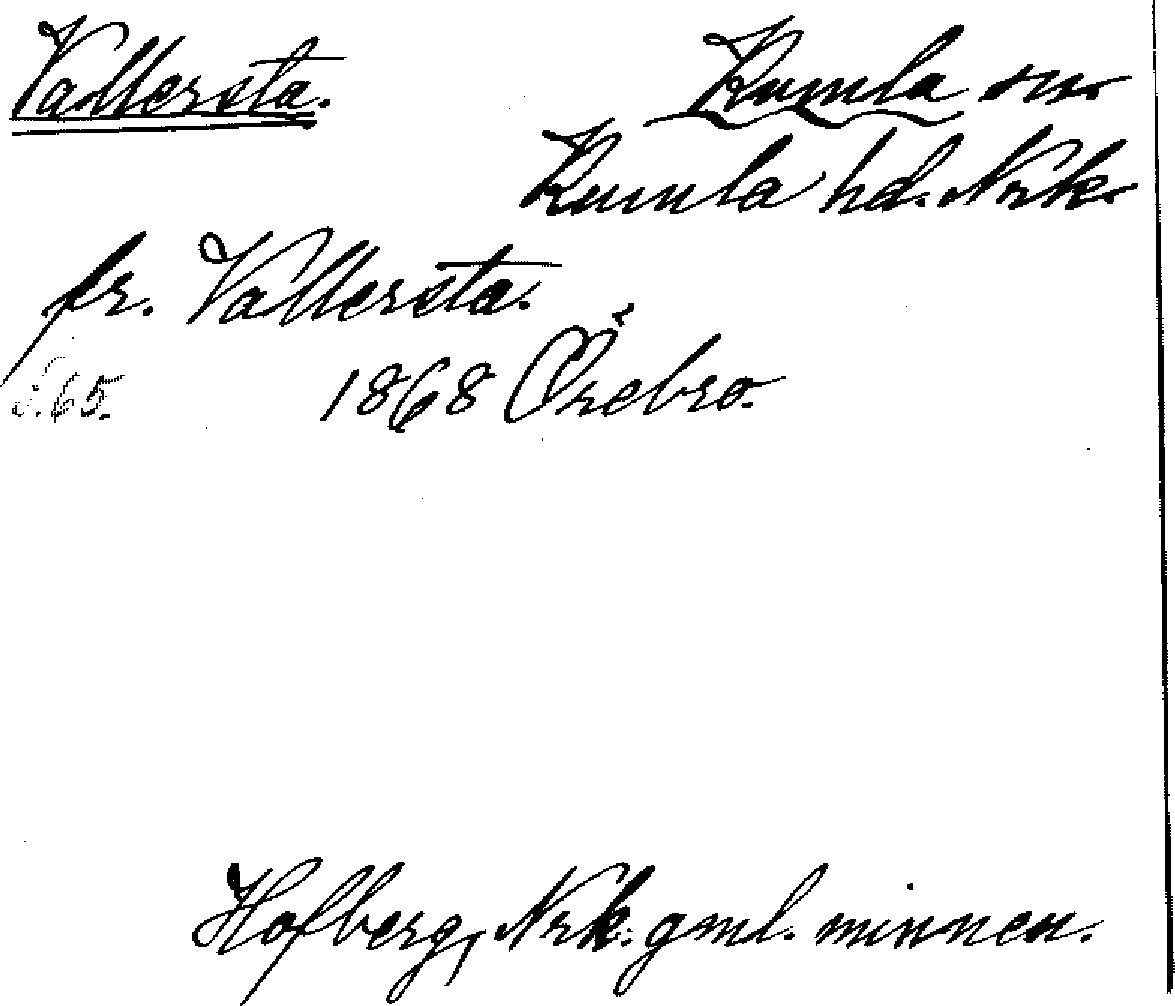 Vallersta. Kumla sn.
Kumla hd. Nrk.
fr. Vallersta.
S. 65. 1868 Örebro.
Hofberg, Nrk. gml. minnen.